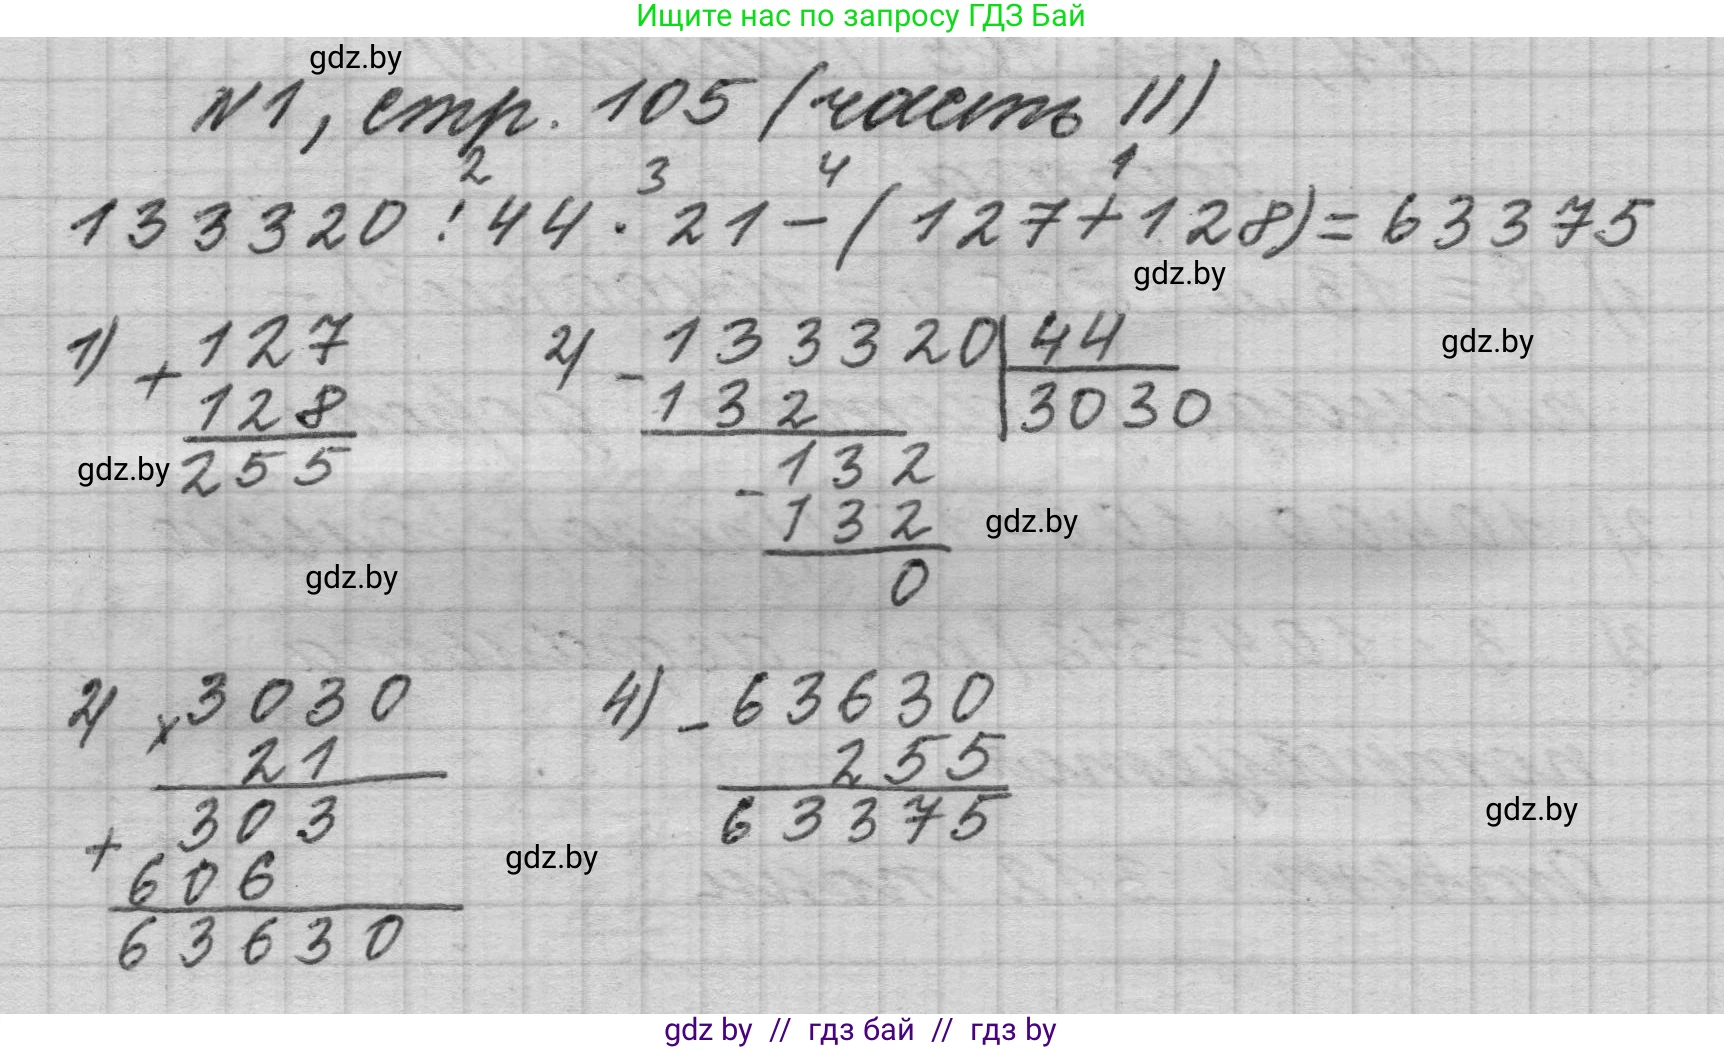 Ищите нас по запросу ГДЗ Бай
gdz.by
№1, стр. 105 (часть II)
2 3 4 1
133320 : 44 · 21 - (127+128) = 63375
gdz.by
1) + 127
128
255
gdz.by
2) - 133320 | 44
132 3030
- 132
132
0
gdz.by
gdz.by
gdz.by
2) x 3030
21
303
+ 606
63630
gdz.by
4) - 63630
255
63375
gdz.by
gdz by // гдз бай // гдз by